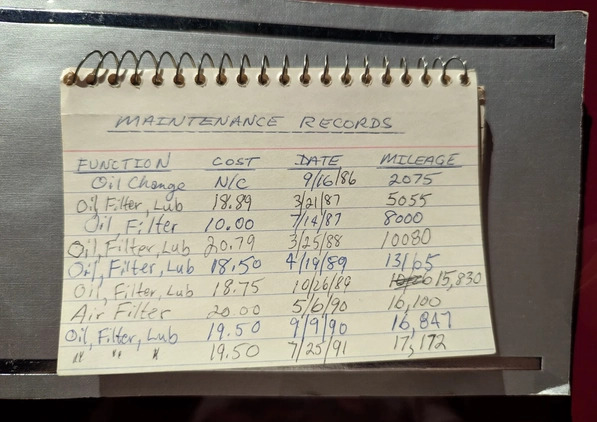 MAINTENANCE RECORDS
FUNCTION COST DATE MILEAGE
Oil Change N/C 9/16/86 2075
Oil, Filter, Lub 18.89 3/21/87 5055
Oil, Filter 10.00 7/14/87 8000
Oil, Filter, Lub 20.79 3/25/88 10080
Oil, Filter, Lub 18.50 4/19/89 13165
Oil, Filter, Lub 18.75 10/26/89 15,830
Air Filter 20.00 5/6/90 16,100
Oil, Filter, Lub 19.50 9/9/90 16,847
" " " 19.50 7/25/91 17,172